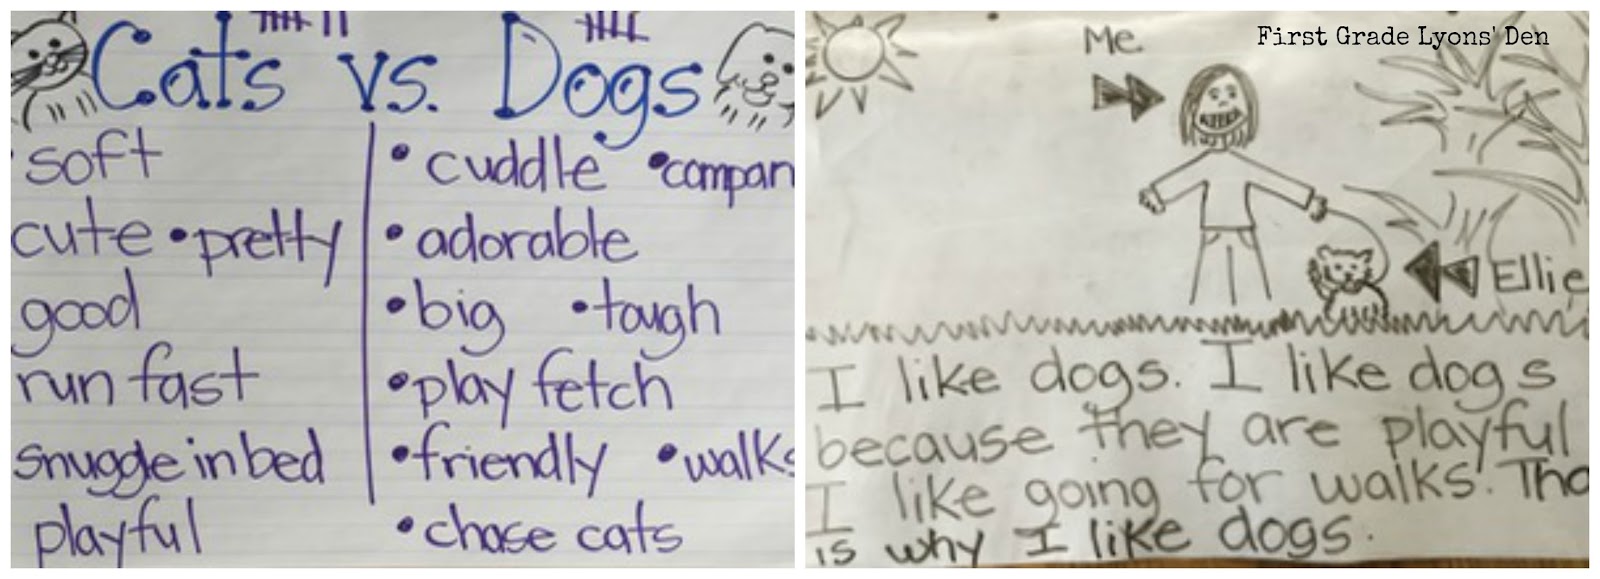 Cats vs. Dogs
soft
cute • pretty
good
run fast
snuggle in bed
playful
• cuddle • compan
• adorable
• big • tough
• play fetch
• friendly • walks
• chase cats
First Grade Lyons' Den
Me
Ellie
I like dogs. I like dogs
because they are playful
I like going for walks. Tha
is why I like dogs.